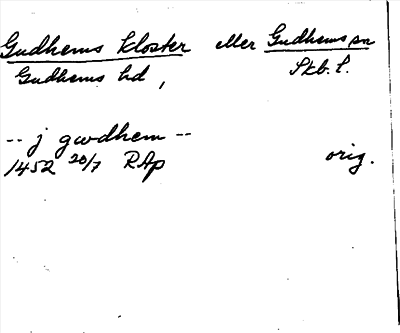 Gudhems kloster eller Gudhems sn
Gudhems hd, Skb. l.
-- j gwdhem --
1452 20/7 RAp orig.